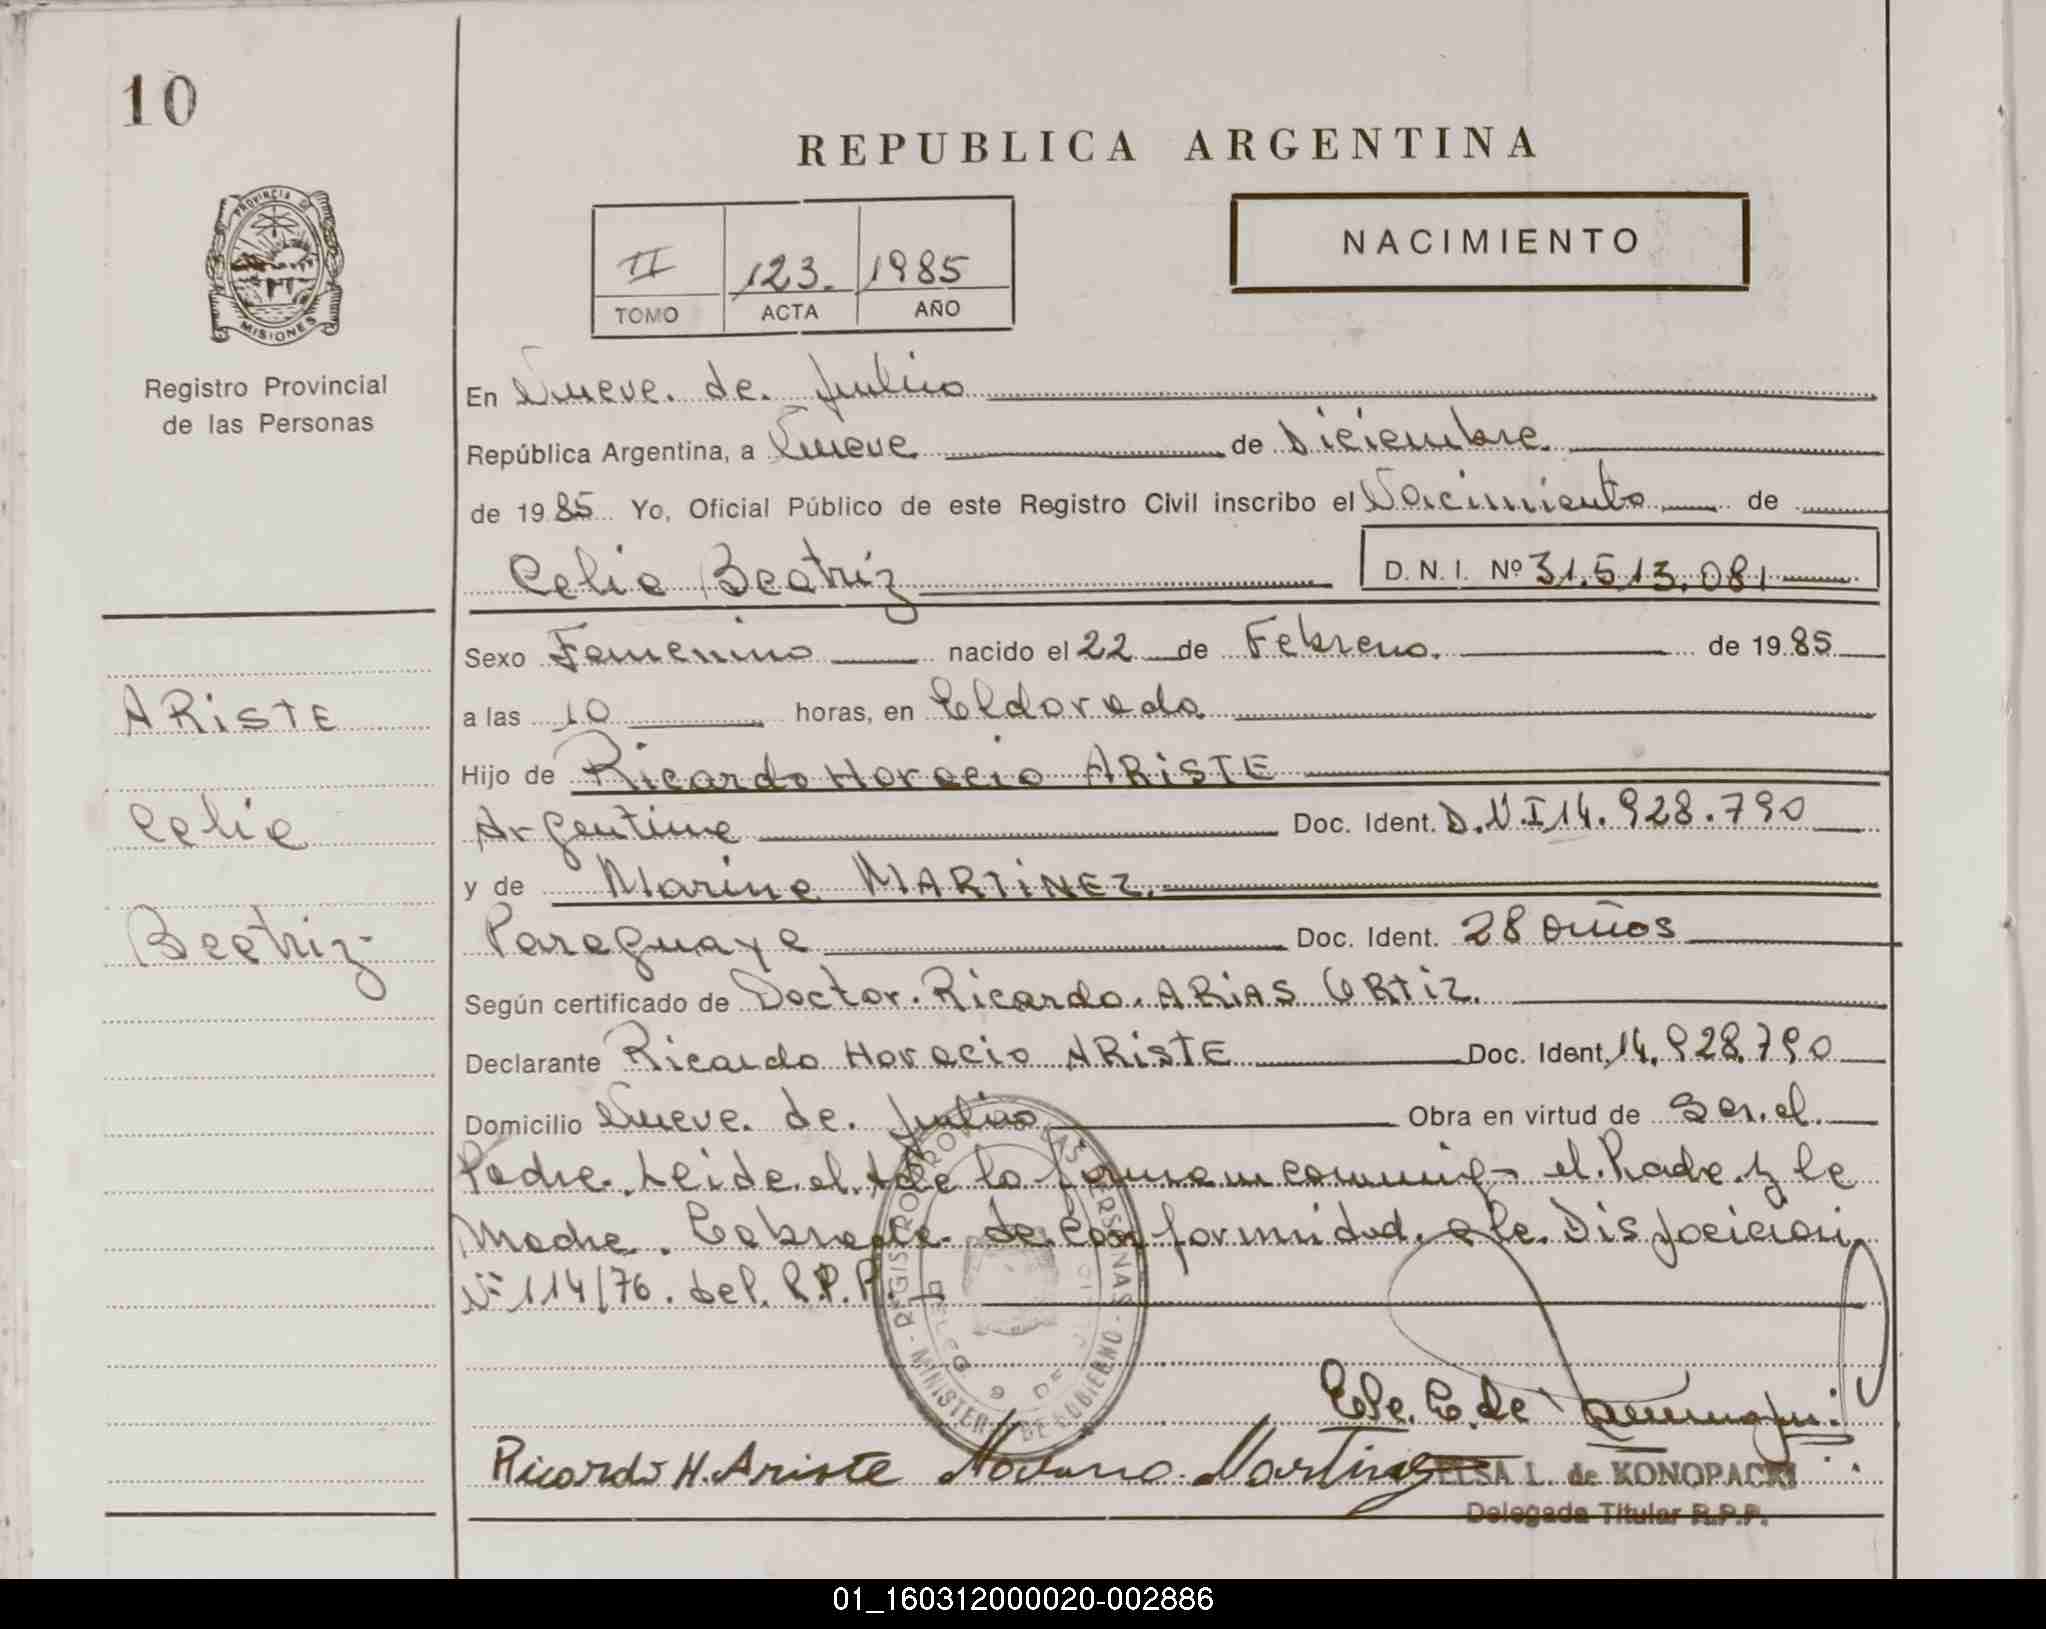 10
REPUBLICA ARGENTINA
PROVINCIA DE
MISIONES
Registro Provincial
de las Personas
II 123. 1985
TOMO ACTA AÑO
NACIMIENTO
En Nueve. de. Julio
República Argentina, a Nueve de Diciembre.
de 1985 Yo, Oficial Público de este Registro Civil inscribo el Nacimiento de
Celia Beatriz D.N.I. Nº 31.513.081
Sexo Femenino nacido el 22 de Febrero. de 1985
a las 10 horas, en Eldorado
Hijo de Ricardo Horacio ARiSTE
Argentina Doc. Ident. D.N.I 14.928.790
y de Marina MARTiNEZ.
Paraguaya Doc. Ident. 28 años
Según certificado de Doctor. Ricardo. ARiAS ORTiZ.
Declarante Ricardo Horacio ARiSTE Doc. Ident. 14.928.790
Domicilio Nueve. de. Julio Obra en virtud de Ser. el.
Padre. Leida el. la el. Padre. y la
Madre. de Conformidad. a la. Disposicion
Nº 114/76. del. R.P.P.
ARiSTE
Celia
Beatriz
REGISTRO PROV LAS PERSONAS
MINISTERIO DE GOBIERNO
Ricardo H. Ariste Martinez
ELSA L. de KONOPACKI
Delegada Titular R.P.P.
01_160312000020-002886